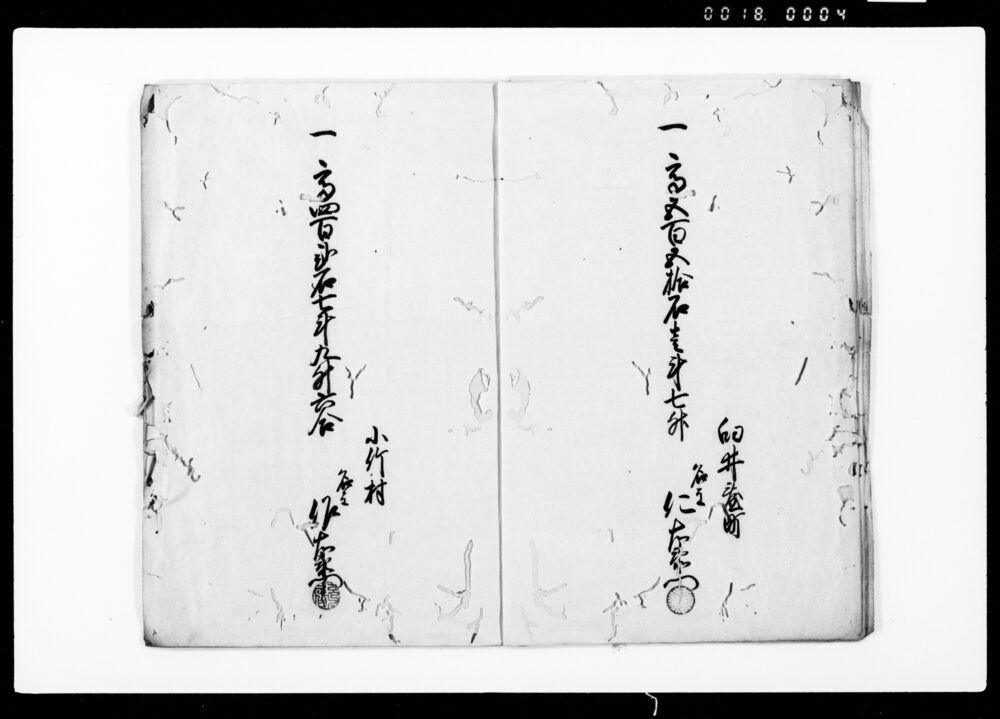 0018. 0004
一 高五百五拾石壱斗七升
臼井臺町
名主 仁右衛門
一 高四百弐石七斗九升六合
小竹村
名主 作左衛門